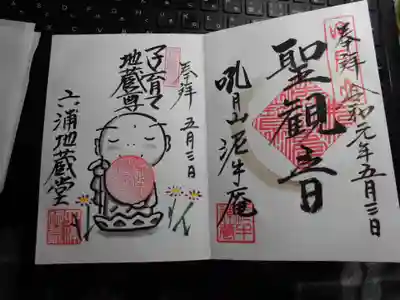 奉拝 令和元年五月三日
聖観音
吼月山 泥牛庵
奉拝 五月三日
子育て
地蔵尊
六浦地蔵堂